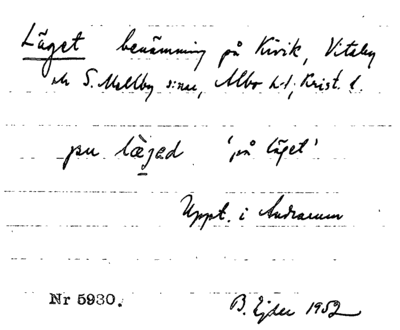 Läget benämning på Kivik, Vitaby
och S. Mellby s:nar, Albo hd, Krist. l.
pu lægad 'på läget'
Uppt. i Andrarum
Nr 5930. B. Ejder 1952